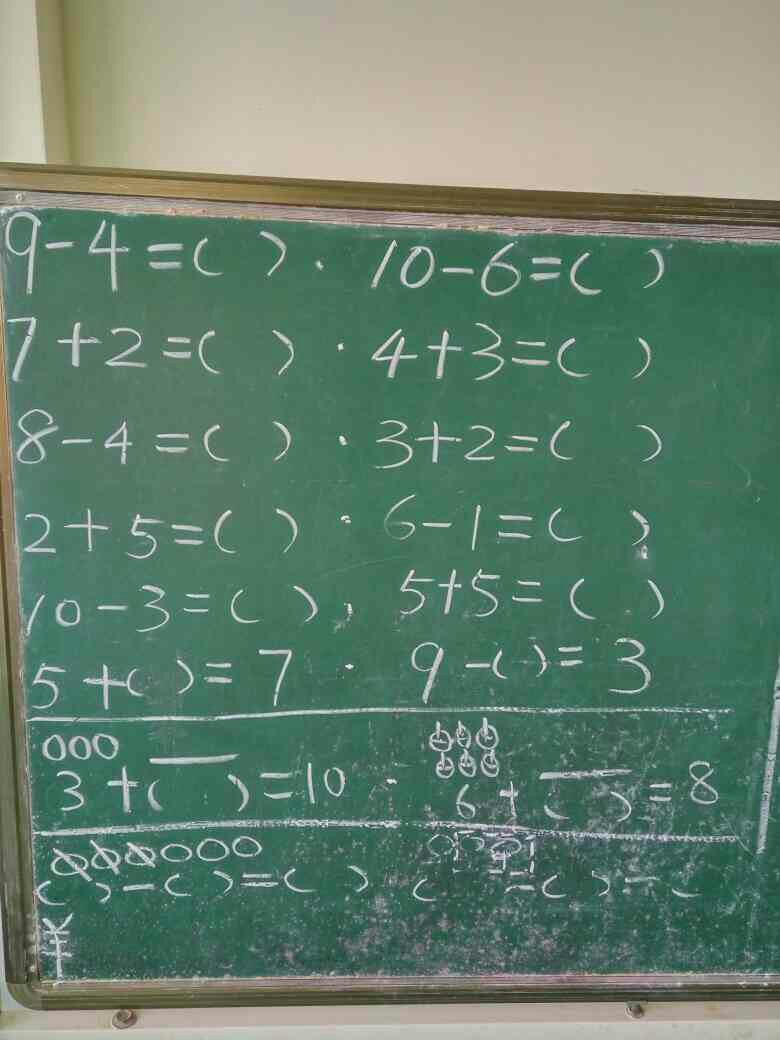 9-4=( ). 10-6=( )
7+2=( ) · 4+3=( )
8-4=( ) · 3+2=( )
2+5=( ) · 6-1=( )
10-3=( ), 5+5=( )
5+( )=7 · 9-( )=3
3+( )=10 · 6+( )=8
( )-( )=( ) ( )-( )=(
¥